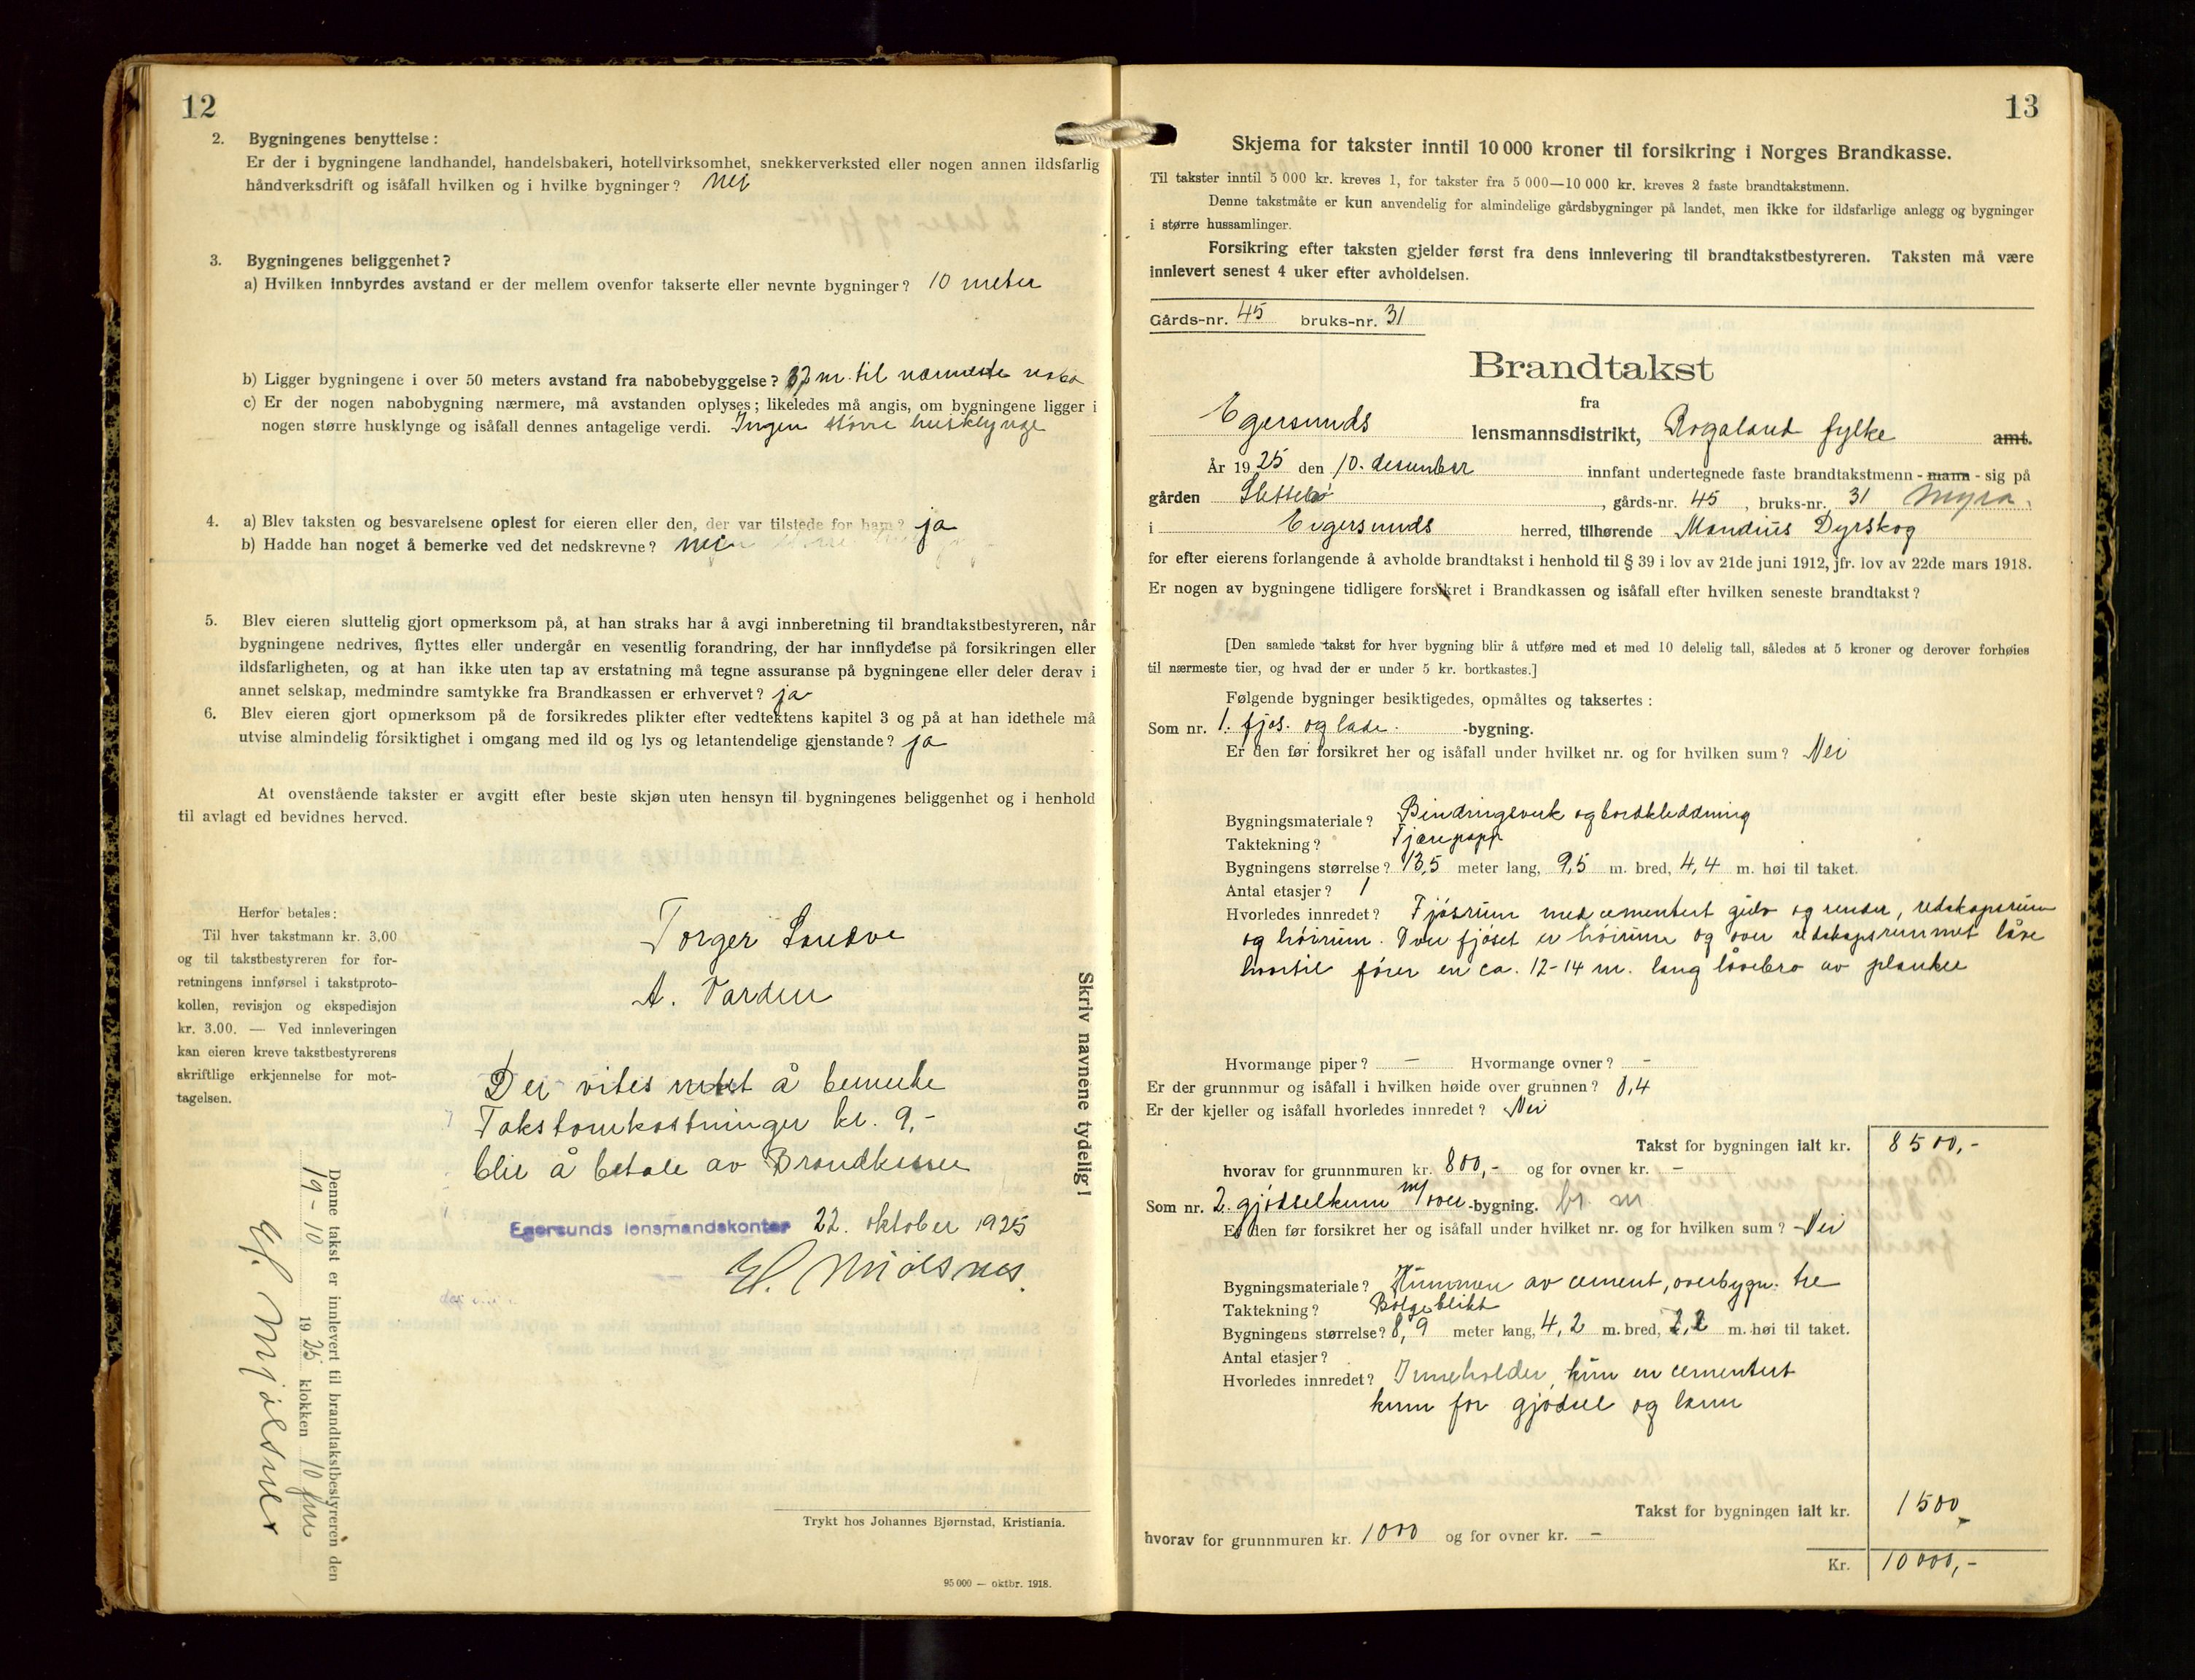 12
2. Bygningenes benyttelse :
Er der i bygningene landhandel, handelsbakeri, hotellvirksomhet, snekkerverksted eller nogen annen ildsfarlig
håndverksdrift og isåfall hvilken og i hvilke bygninger? nei
3. Bygningenes beliggenhet?
a) Hvilken innbyrdes avstand er der mellem ovenfor takserte eller nevnte bygninger? 10 meter
b) Ligger bygningene i over 50 meters avstand fra nabobebyggelse? 32 m. til nærmeste nabo
c) Er der nogen nabobygning nærmere, må avstanden oplyses; likeledes må angis, om bygningene ligger i
nogen større husklynge og isåfall dennes antagelige verdi. Ingen större husklynge
4. a) Blev taksten og besvarelsene oplest for eieren eller den, der var tilstede for ham? ja
b) Hadde han noget å bemerke ved det nedskrevne? nei
5. Blev eieren sluttelig gjort opmerksom på, at han straks har å avgi innberetning til brandtakstbestyreren, når
bygningene nedrives, flyttes eller undergår en vesentlig forandring, der har innflydelse på forsikringen eller
ildsfarligheten, og at han ikke uten tap av erstatning må tegne assuranse på bygningene eller deler derav i
annet selskap, medmindre samtykke fra Brandkassen er erhvervet? ja
6. Blev eieren gjort opmerksom på de forsikredes plikter efter vedtektens kapitel 3 og på at han idethele må
utvise almindelig forsiktighet i omgang med ild og lys og letantendelige gjenstande? ja
At ovenstående takster er avgitt efter beste skjøn uten hensyn til bygningenes beliggenhet og i henhold
til avlagt ed bevidnes herved.
Herfor betales:
Til hver takstmann kr. 3.00
og til takstbestyreren for for-
retningens innførsel i takstproto-
kollen, revisjon og ekspedisjon
kr. 3.00. — Ved innleveringen
kan eieren kreve takstbestyrerens
skriftlige erkjennelse for mot-
tagelsen.
Torger Sandve
A. Varden
Skriv navnene tydelig!
Der vites intet å bemerke
Takstomkostninger kr. 9,-
blir å betale av Brandkassen
Egersunds lensmandskontor 22. oktober 1925
H. Mjølsnes.
Denne takst er innlevert til brandtakstbestyreren den
19-10 1925 klokken 10 fm
H. Mjølsnes
Trykt hos Johannes Bjørnstad, Kristiania.
95 000 — oktbr. 1918.
13
Skjema for takster inntil 10 000 kroner til forsikring i Norges Brandkasse.
Til takster inntil 5 000 kr. kreves 1, for takster fra 5 000—10 000 kr. kreves 2 faste brandtakstmenn.
Denne takstmåte er kun anvendelig for almindelige gårdsbygninger på landet, men ikke for ildsfarlige anlegg og bygninger
i større hussamlinger.
Forsikring efter taksten gjelder først fra dens innlevering til brandtakstbestyreren. Taksten må være
innlevert senest 4 uker efter avholdelsen.
Gårds-nr. 45 bruks-nr. 31
Brandtakst
fra
Egersunds lensmannsdistrikt, Rogaland fylke amt.
År 1925 den 10. desember innfant undertegnede faste brandtakstmenn - mann - sig på
gården Slettebö, gårds-nr. 45, bruks-nr. 31 Myra.
i Eigersunds herred, tilhørende Mandius Dyrskog
for efter eierens forlangende å avholde brandtakst i henhold til § 39 i lov av 21de juni 1912, jfr. lov av 22de mars 1918.
Er nogen av bygningene tidligere forsikret i Brandkassen og isåfall efter hvilken seneste brandtakst?
[Den samlede takst for hver bygning blir å utføre med et med 10 delelig tall, således at 5 kroner og derover forhøies
til nærmeste tier, og hvad der er under 5 kr. bortkastes.]
Følgende bygninger besiktigedes, opmåltes og taksertes :
Som nr. 1. fjøs. og lade. -bygning.
Er den før forsikret her og isåfall under hvilket nr. og for hvilken sum? Nei
Bygningsmateriale? Bindringsverk og bordkleddning
Taktekning? Tjærepapp
Bygningens størrelse? 13,5 meter lang, 9,5 m. bred, 4,4 m. høi til taket.
Antal etasjer? 1
Hvorledes innredet? Fjösrum med cementert gulv og render, redskapsrum
og höirum. Over fjöset er höirum og over redskapsrummet låve
hvortil förer en ca. 12-14 m. lang låvebro av planker
Hvormange piper? — Hvormange ovner? -
Er der grunnmur og isåfall i hvilken høide over grunnen? 0,4
Er der kjeller og isåfall hvorledes innredet? Nei
Takst for bygningen ialt kr. 8500,-
hvorav for grunnmuren kr. 800,- og for ovner kr. -
Som nr. 2. gjödselkum m/over-bygning.
Er den før forsikret her og isåfall under hvilket nr. og for hvilken sum? Nei
Bygningsmateriale? Kummen av cement, overbygn. tre
Taktekning? Bölgeblikt
Bygningens størrelse? 8,9 meter lang, 4,2 m. bred, 2,2 m. høi til taket.
Antal etasjer?
Hvorledes innredet? Inneholder kun en cementert
kum for gjödsel og lann
Takst for bygningen ialt kr. 1500,-
hvorav for grunnmuren kr. 1000 og for ovner kr. -
Kr. 10000,-